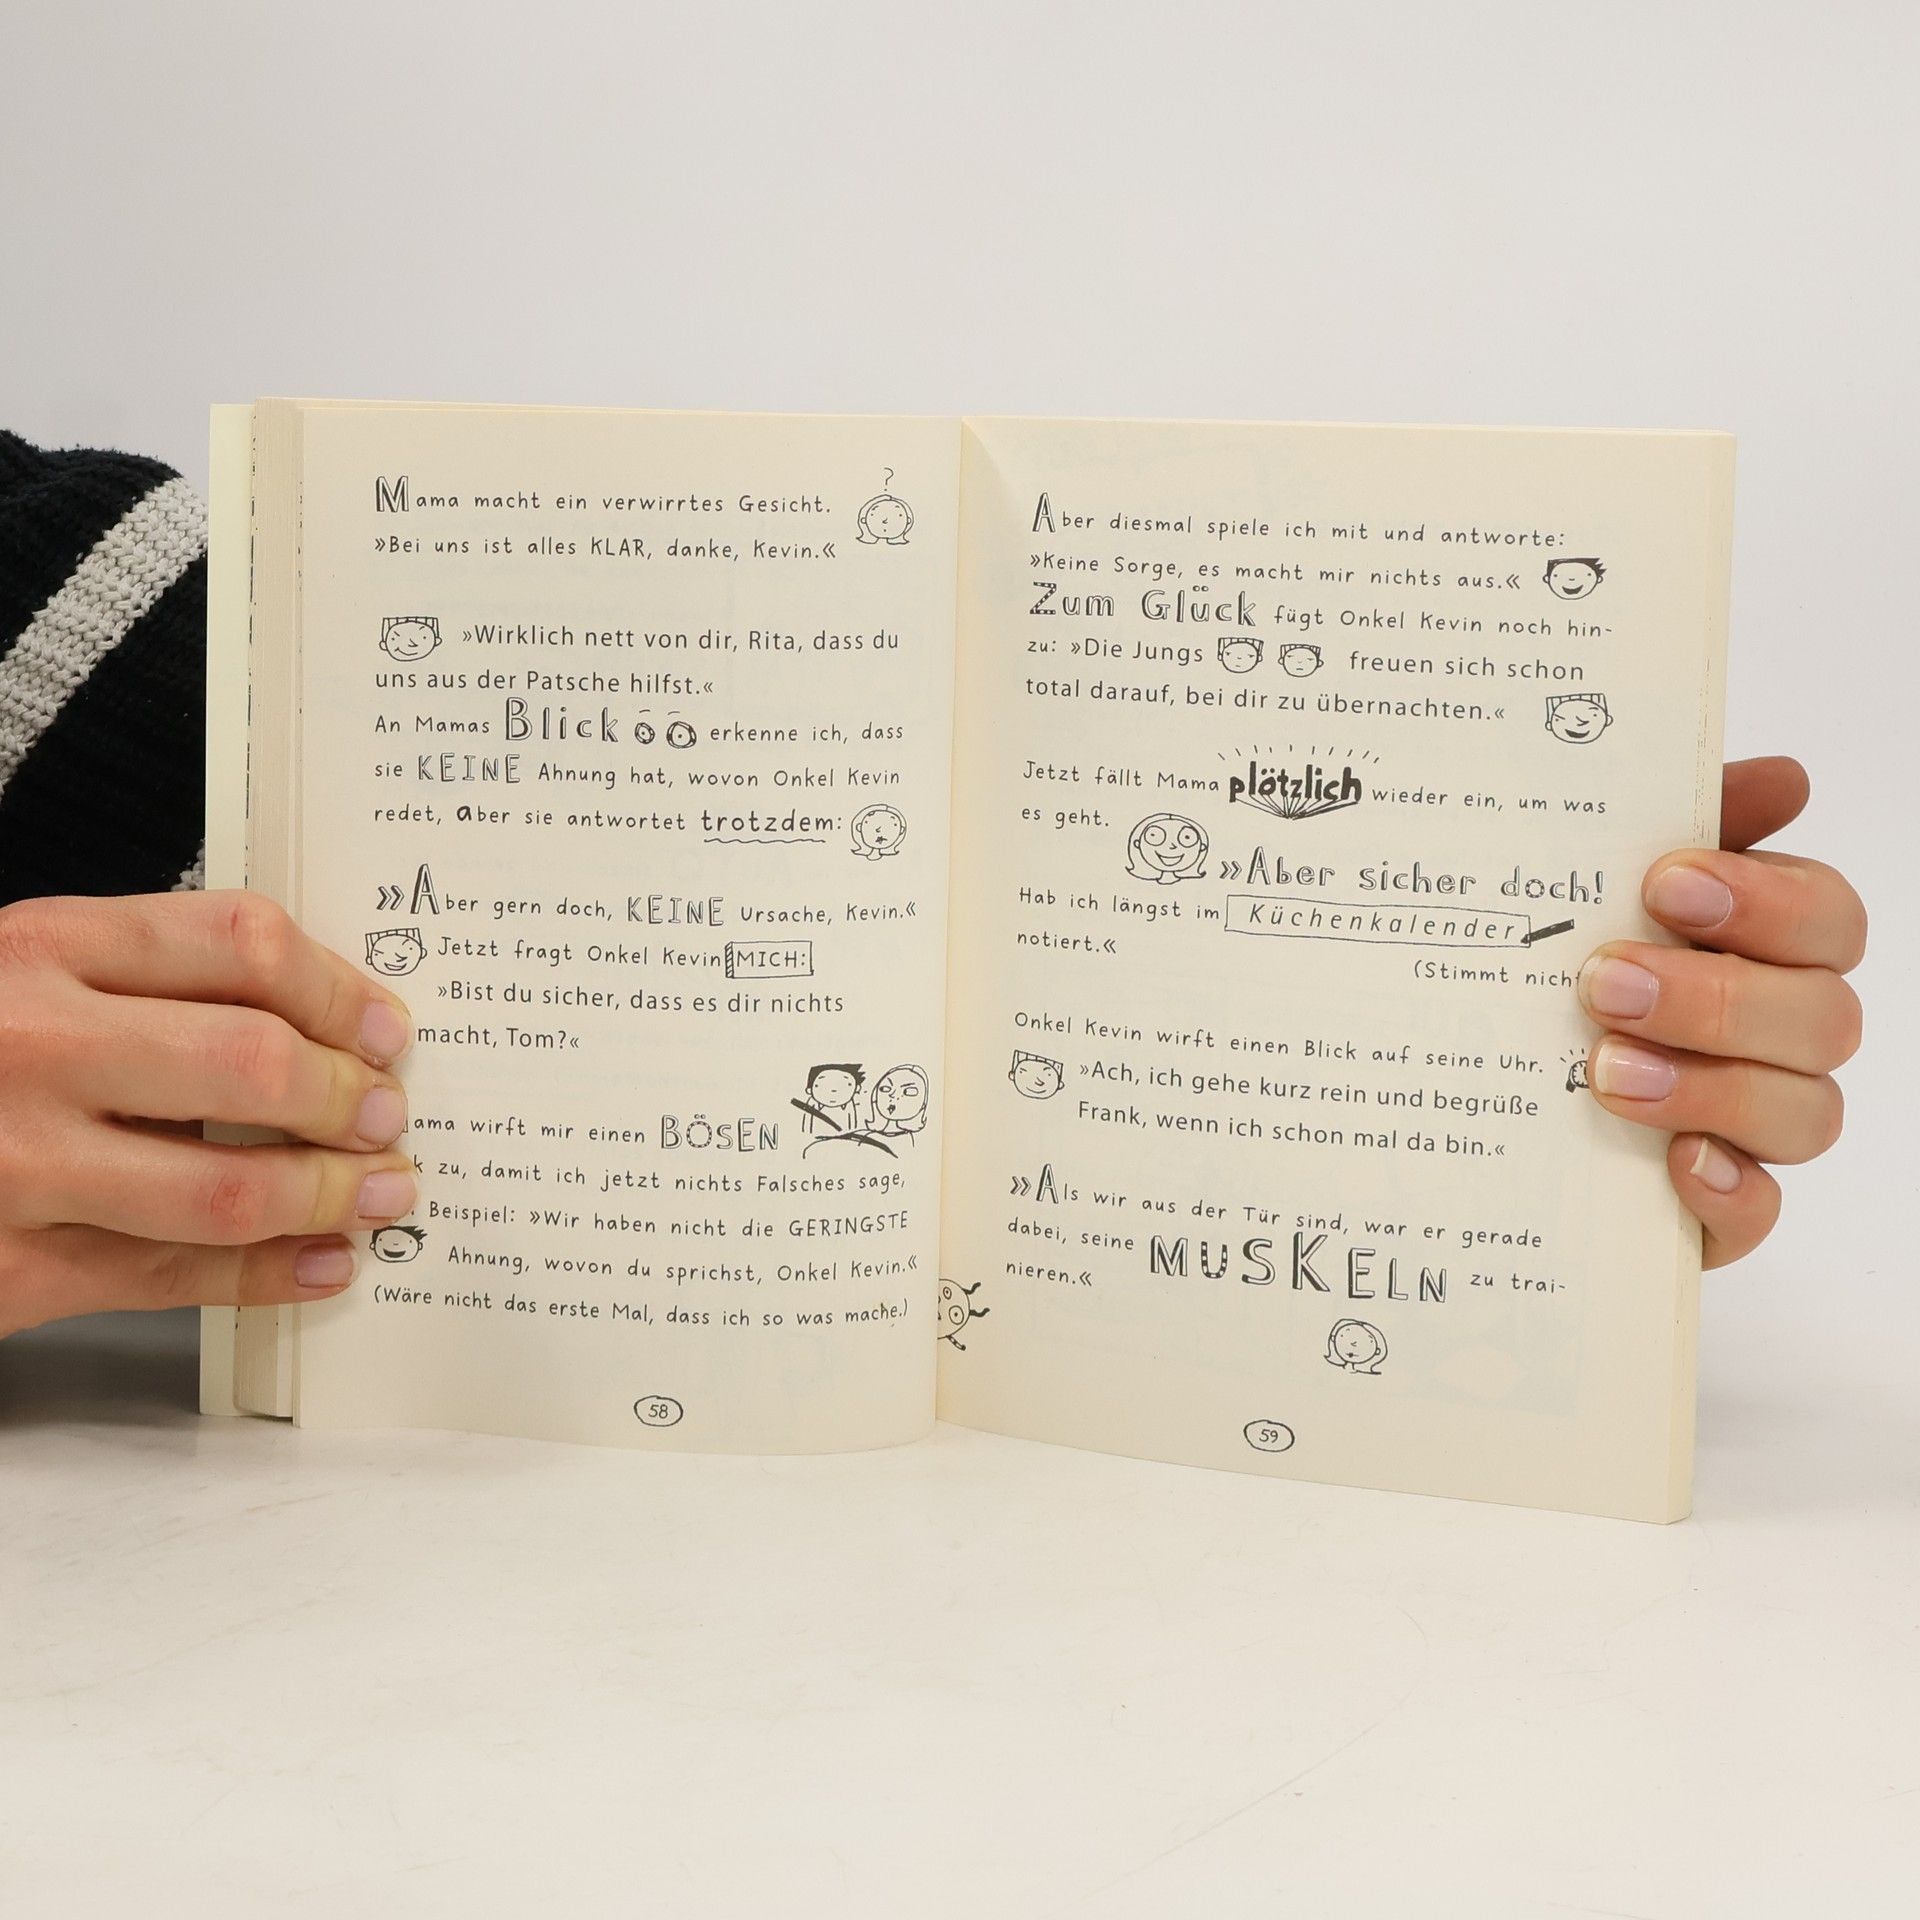 Mama macht ein verwirrtes Gesicht.
?
»Bei uns ist alles KLAR, danke, Kevin.«
»Wirklich nett von dir, Rita, dass du
uns aus der Patsche hilfst.«
An Mamas Blick erkenne ich, dass
sie KEINE Ahnung hat, wovon Onkel Kevin
redet, aber sie antwortet trotzdem:
»Aber gern doch, KEINE Ursache, Kevin.«
Jetzt fragt Onkel Kevin MICH:
»Bist du sicher, dass es dir nichts
macht, Tom?«
wirft mir einen BÖSEN
zu, damit ich jetzt nichts Falsches sage,
Beispiel: »Wir haben nicht die GERINGSTE
Ahnung, wovon du sprichst, Onkel Kevin.«
(Wäre nicht das erste Mal, dass ich so was mache.)
58
Aber diesmal spiele ich mit und antworte:
»Keine Sorge, es macht mir nichts aus.«
Zum Glück fügt Onkel Kevin noch hin-
zu: »Die Jungs freuen sich schon
total darauf, bei dir zu übernachten.«
Jetzt fällt Mama plötzlich wieder ein, um was
es geht.
»Aber sicher doch!
Hab ich längst im Küchenkalender
notiert.«
(Stimmt nicht
Onkel Kevin wirft einen Blick auf seine Uhr.
»Ach, ich gehe kurz rein und begrüße
Frank, wenn ich schon mal da bin.«
»Als wir aus der Tür sind, war er gerade
dabei, seine MUSKELN zu trai-
nieren.«
59